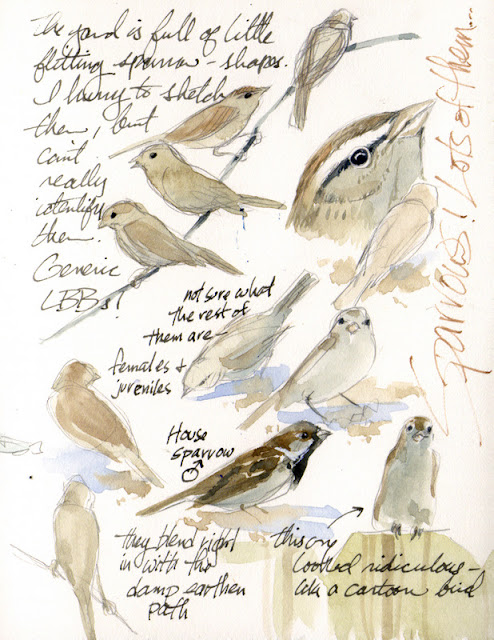 The yard is full of little
flitting sparrow-shapes.
I hurry to sketch
them, but
can't
really
identify
them.
Generic
LBBs!
Sparrows! Lots of them...
not sure what
the rest of
them are—
females +
juveniles
House
sparrow
♂
they blend right
in with the
damp earthen
path
this guy
looked ridiculous—
like a cartoon bird